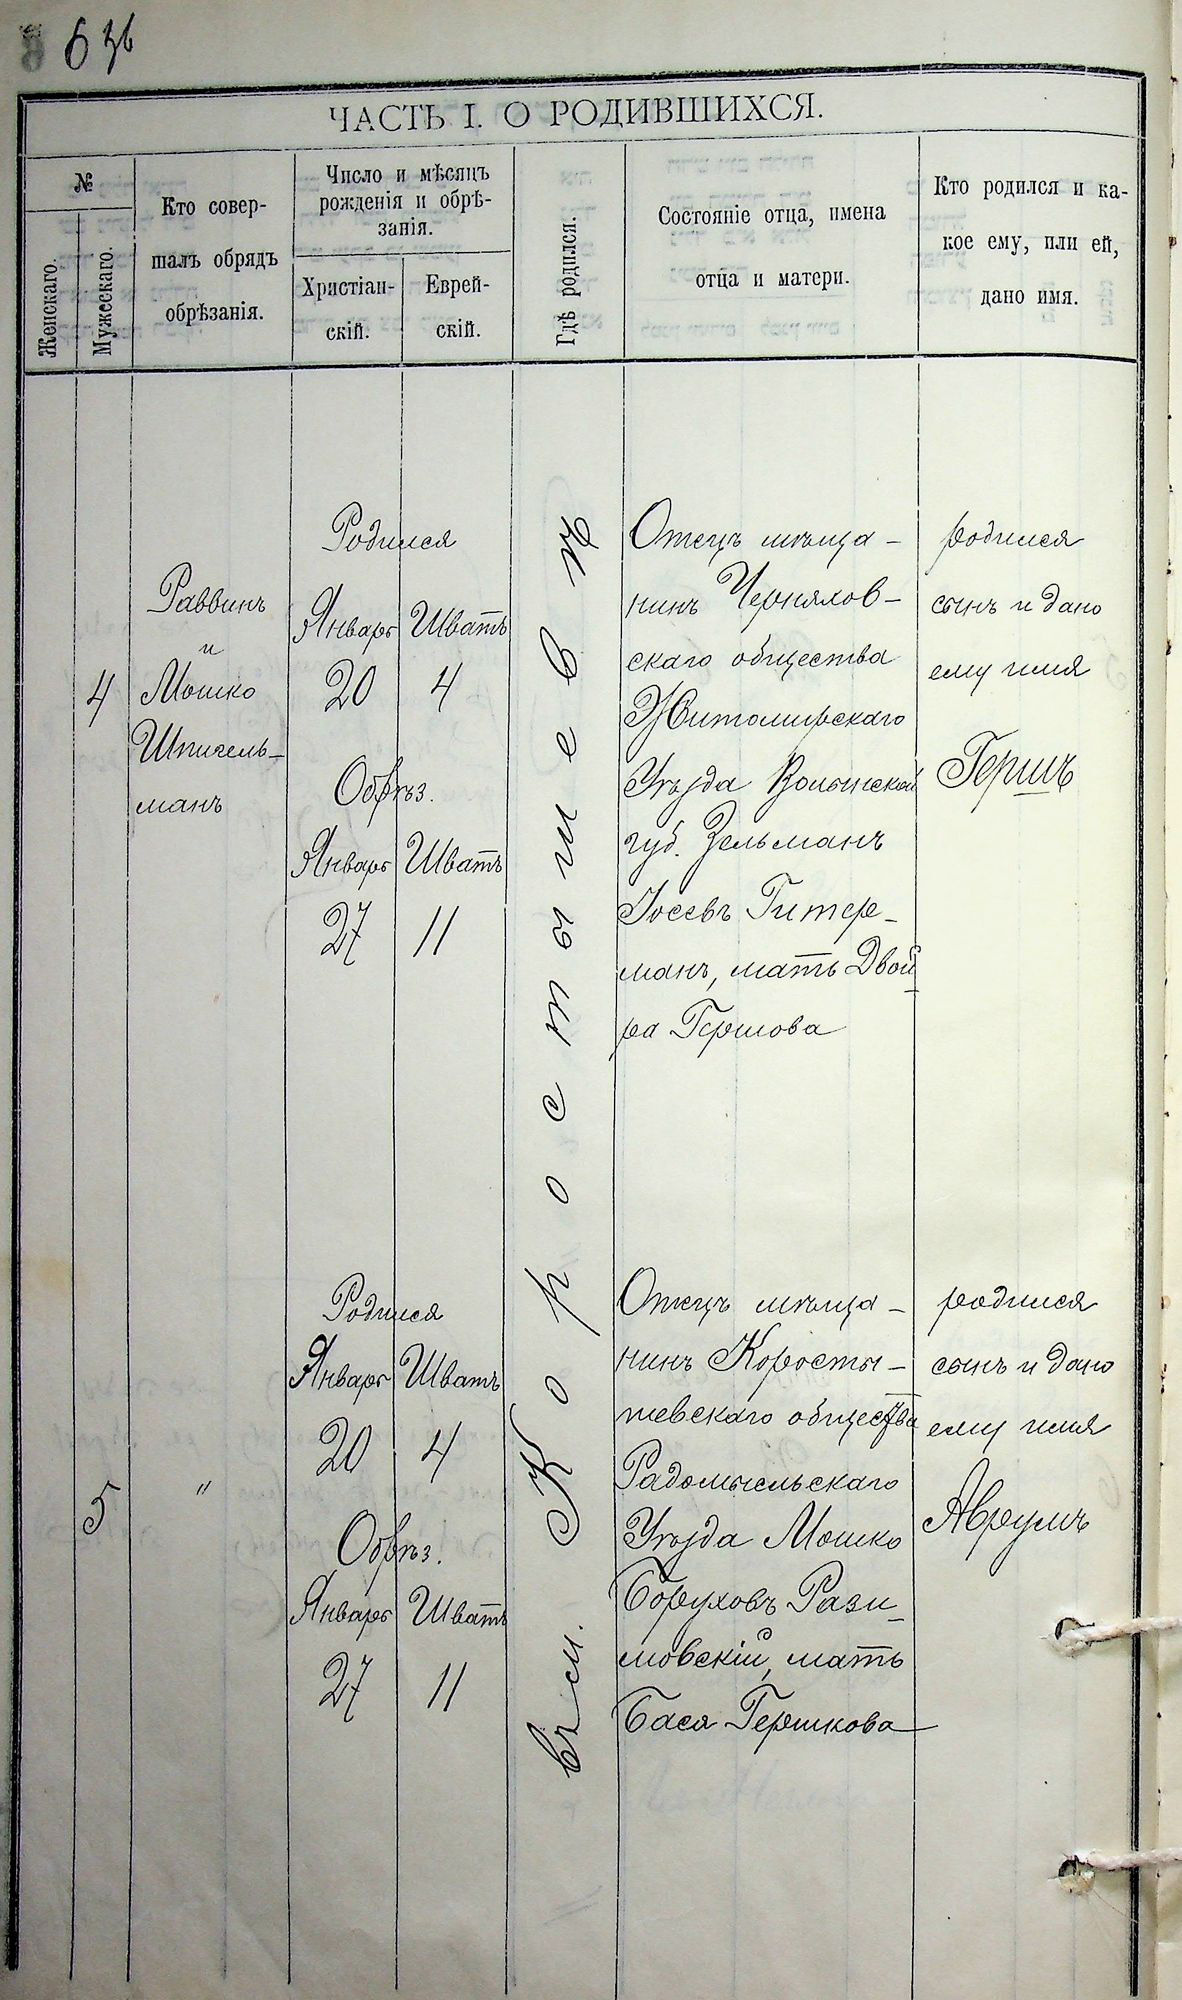 6
ЧАСТЬ I. О РОДИВШИХСЯ.
№
Женскаго.
Мужескаго.
Кто совер-
шалъ обрядъ
обрѣзанія.
Число и мѣсяцъ
рожденія и обрѣ-
занія.
Христіан-
скій.
Еврей-
скій.
Гдѣ родился.
Состояніе отца, имена
отца и матери.
Кто родился и ка-
кое ему, или ей,
дано имя.
4
Раввинъ
и
Мошко
Шпигель-
манъ
Родился
Январь Шватъ
20 4
Обрѣз.
Январь Шватъ
27 11
въ м. Коростышевѣ
Отецъ мѣща-
нинъ Черняхов-
скаго общества
Житомирскаго
Уѣзда Волынской
губ. Зельманъ
Іосевъ Гитер-
манъ, мать Двой-
ра Гершова
родился
сынъ и дано
ему имя
Гершъ
5
"
Родился
Январь Шватъ
20 4
Обрѣз.
Январь Шватъ
27 11
Отецъ мѣща-
нинъ Коросты-
шевскаго общества
Радомысльскаго
Уѣзда Мошко
Боруховъ Рази-
мовскій, мать
Бася Гершкова
родился
сынъ и дано
ему имя
Аврумъ